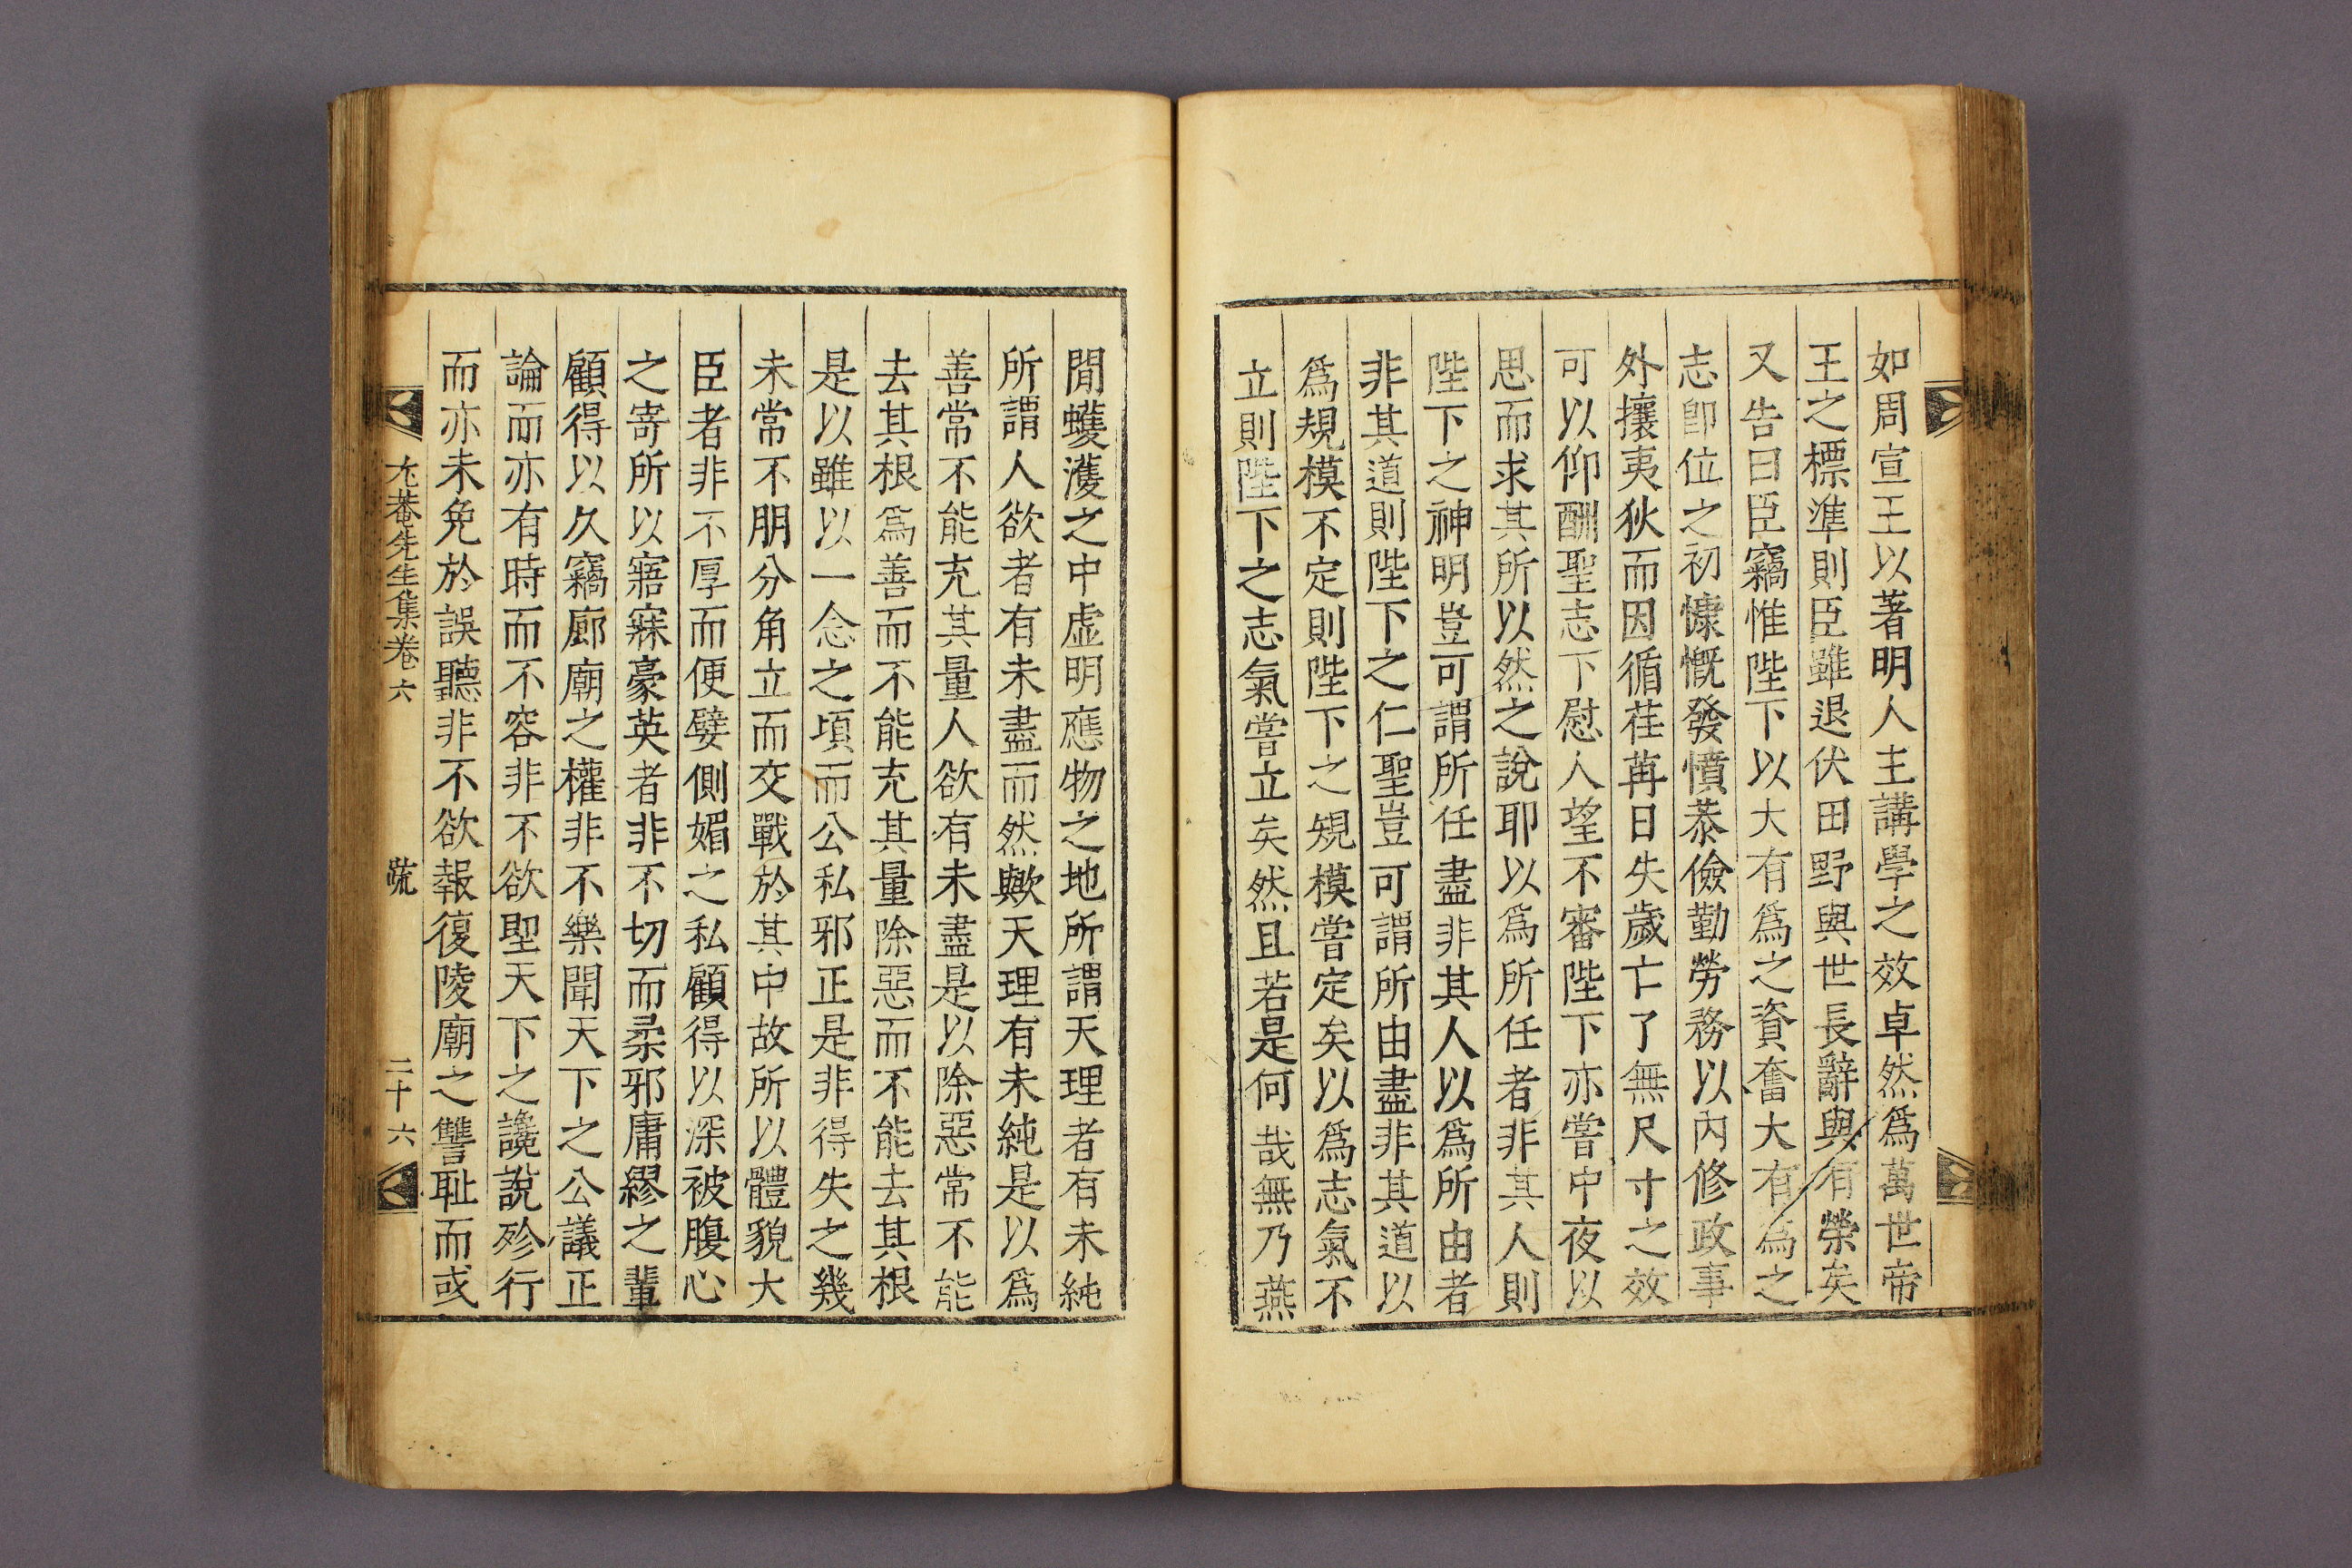 如周宣王以著明人主講學之效卓然爲萬世帝
王之標準則臣雖退伏田野與世長辭與有榮矣
又告曰臣竊惟陛下以大有爲之資奮大有爲之
志卽位之初慷慨發憤恭儉勤勞務以內修政事
外攘夷狄而因循荏苒日失歲亡了無尺寸之效
可以仰酬聖志下慰人望不審陛下亦嘗中夜以
思而求其所以然之說耶以爲所任者非其人則
陛下之神明豈可謂所任盡非其人以爲所由者
非其道則陛下之仁聖豈可謂所由盡非其道以
爲規模不定則陛下之規模嘗定矣以爲志氣不
立則陛下之志氣嘗立矣然且若是何哉無乃燕
閒蠖濩之中虛明應物之地所謂天理者有未純
所謂人欲者有未盡而然歟天理有未純是以爲
善常不能充其量人欲有未盡是以除惡常不能
去其根爲善而不能充其量除惡而不能去其根
是以雖以一念之頃而公私邪正是非得失之幾
未常不朋分角立而交戰於其中故所以體貌大
臣者非不厚而便嬖側媚之私顧得以深被腹心
之寄所以寤寐豪英者非不切而柔邪庸繆之輩
顧得以久竊廊廟之權非不樂聞天下之公議正
論而亦有時而不容非不欲聖天下之讒說殄行
而亦未免於誤聽非不欲報復陵廟之讐恥而或
尤菴先生集卷六 疏 二十六